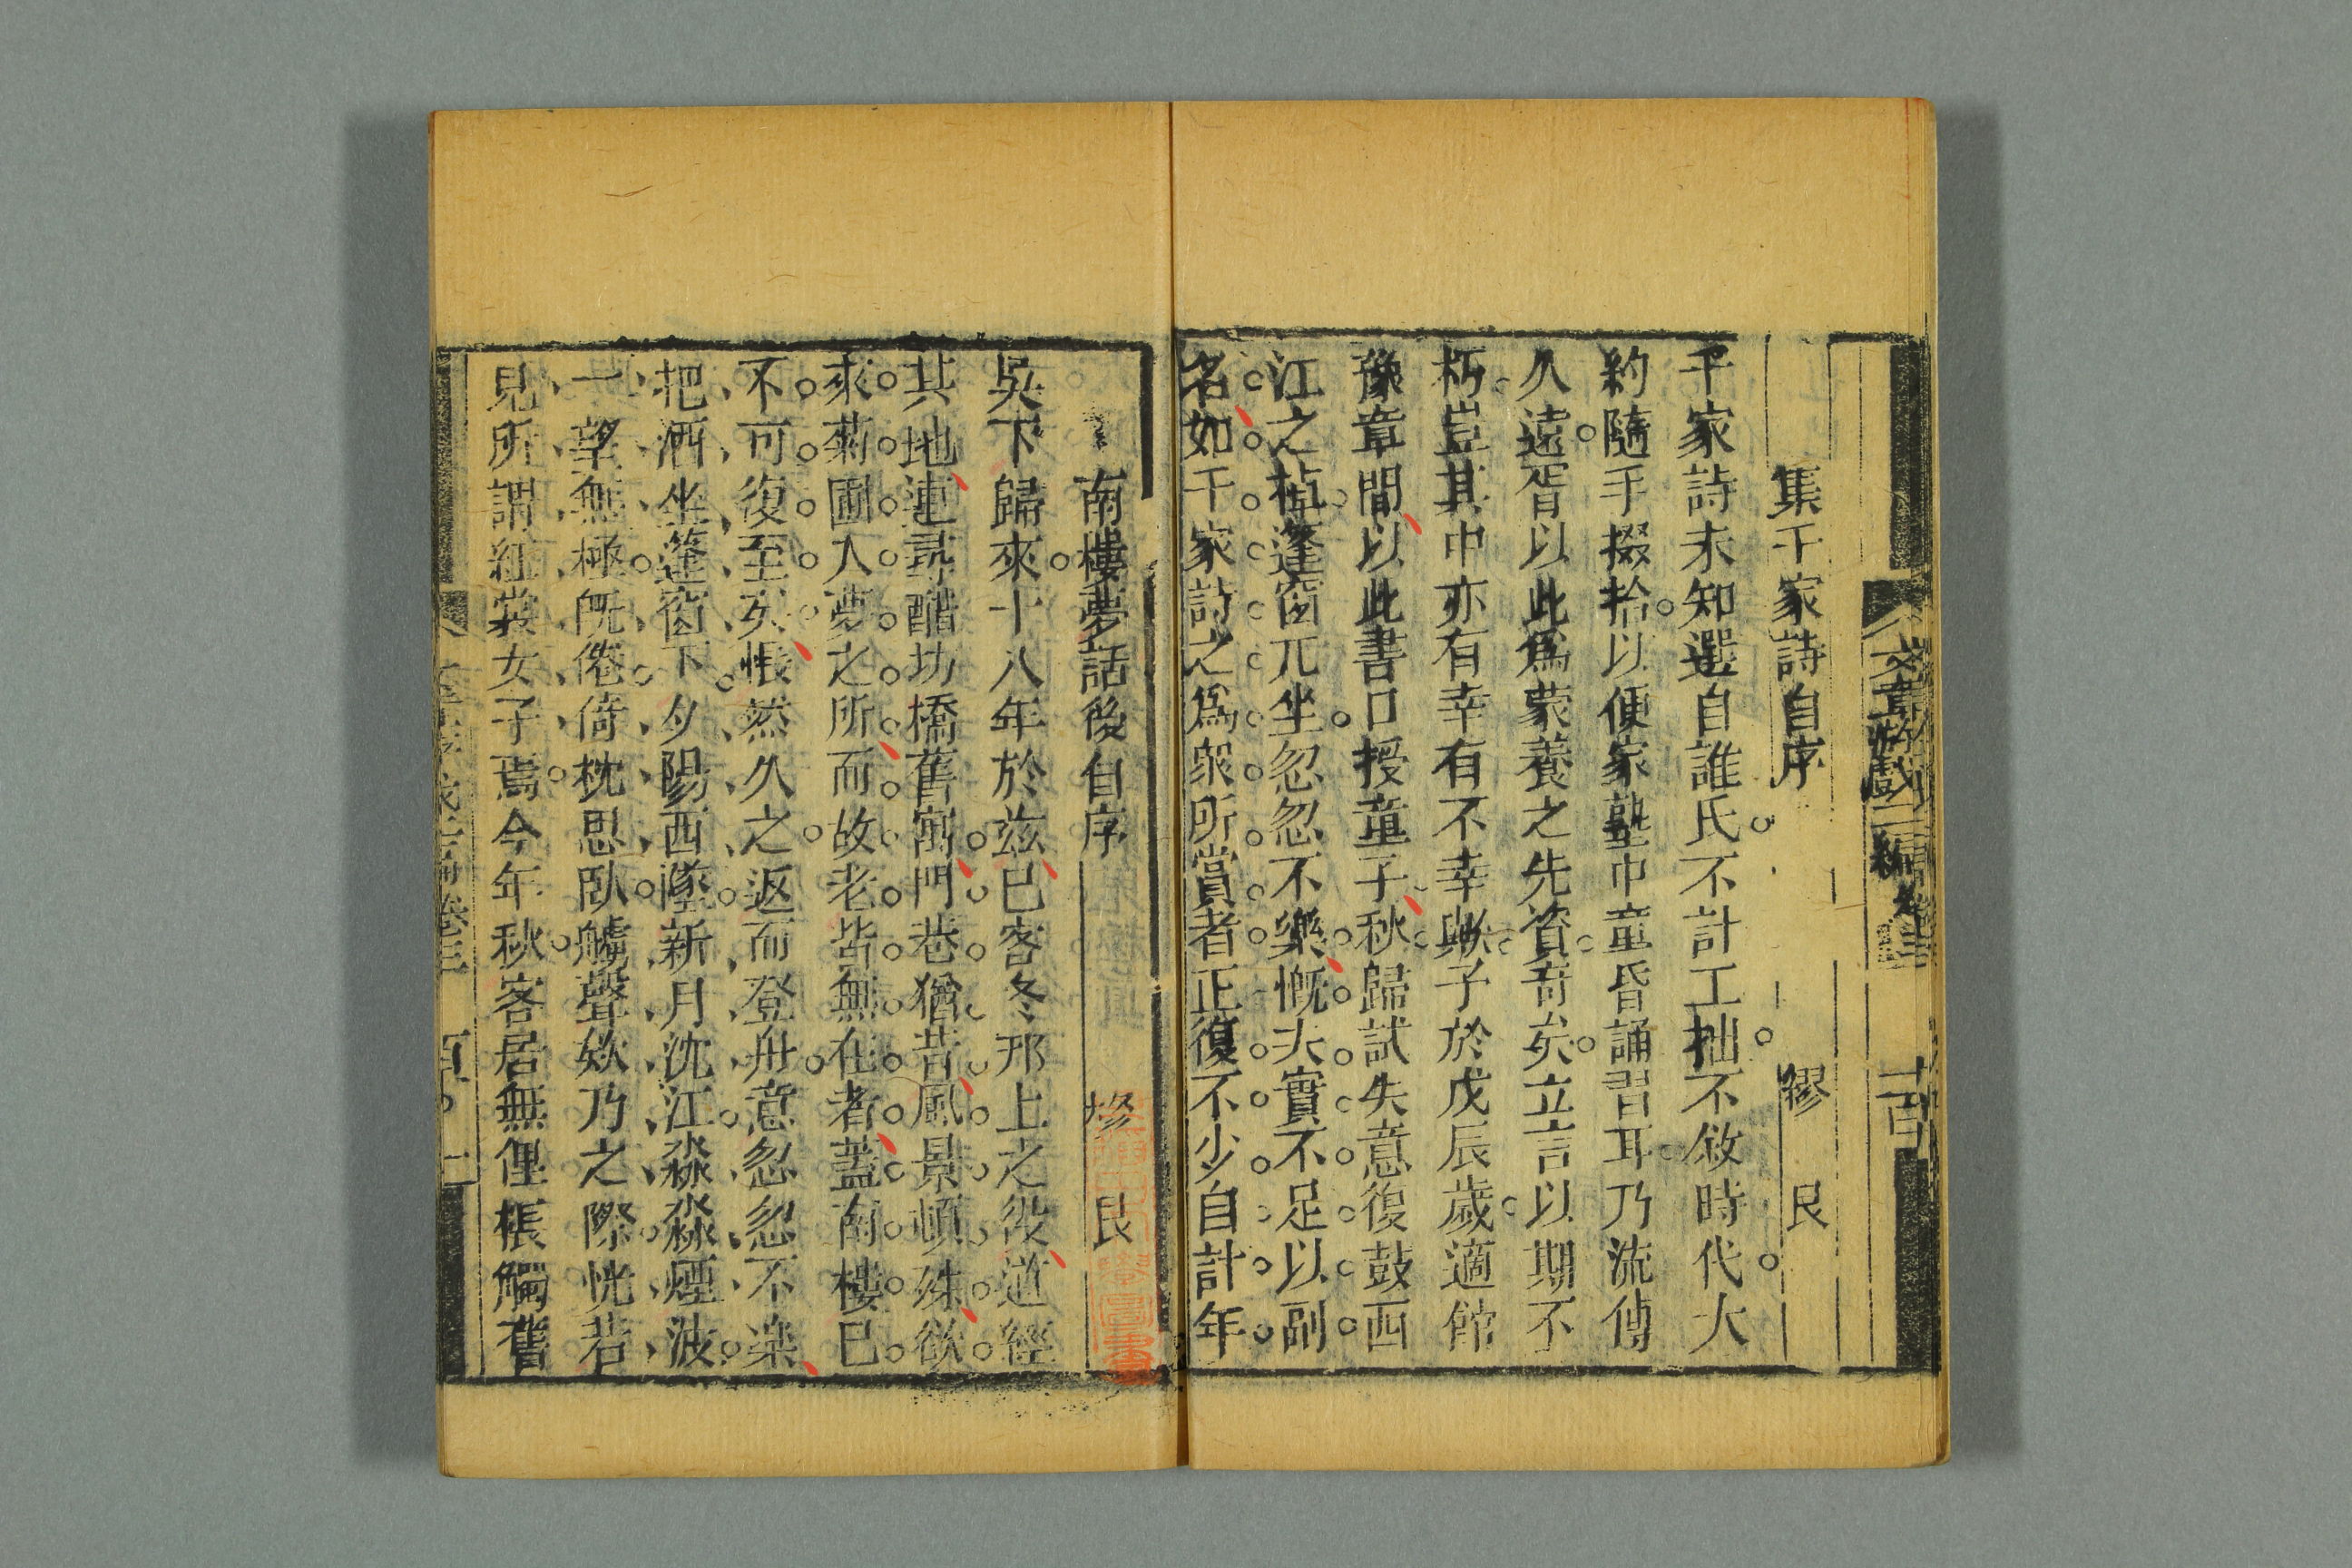 文章游戲二編卷三
集千家詩自序 繆艮
千家詩未知選自誰氏不計工拙不敘時代大
約隨手掇拾以便家塾中童昏誦習耳乃流傳
久遠胥以此爲蒙養之先資竒矣立言以期不
朽豈其中亦有幸有不幸歟予於戊辰歲適館
豫章間以此書口授童子秋歸試失意復鼓西
江之棹蓬窗兀坐忽忽不樂慨夫實不足以副
名如千家詩之爲衆所賞者正復不少自計年
南樓夢話後自序 繆艮
吳下歸來十八年於兹已客冬邗上之役道經
其地連尋醋坊橋舊寓門巷猶昔風景頓殊欲
求菊圃人夢之所而故老皆無在者蓋南樓已
不可復至矣悵然久之返而登舟意忽忽不樂
把酒坐蓬窗下夕陽西墜新月沈江淼淼煙波
一望無極旣倦倚枕思臥艣聲欸乃之際恍若
見所謂紅裳女子焉今年秋客居無俚棖觸舊
卷三